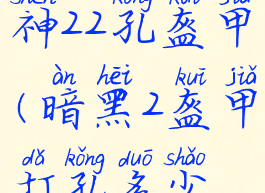 shén kǒng kuī jiǎ
神22孔盔甲
àn hēi kuī jiǎ
(暗黑2盔甲
dǎ kǒng duō shǎo
打孔多少